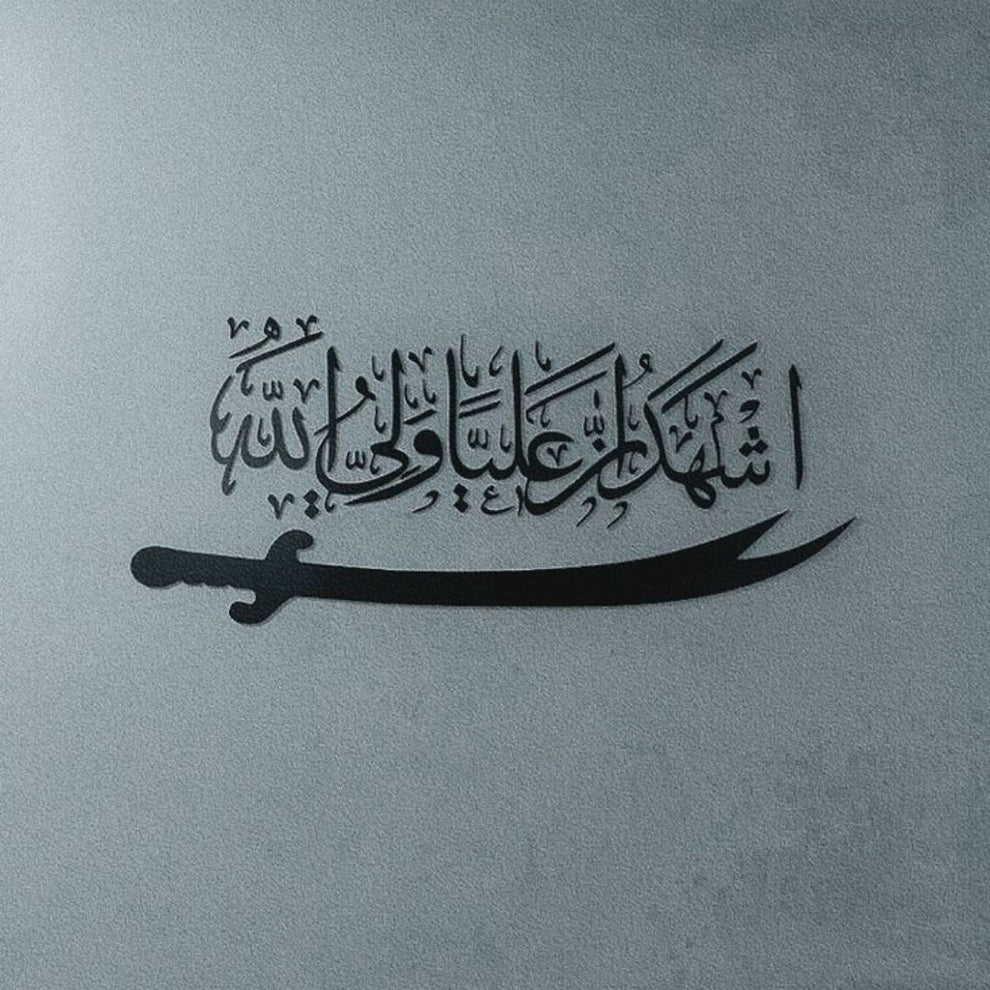 اشهد ان عليا ولي الله